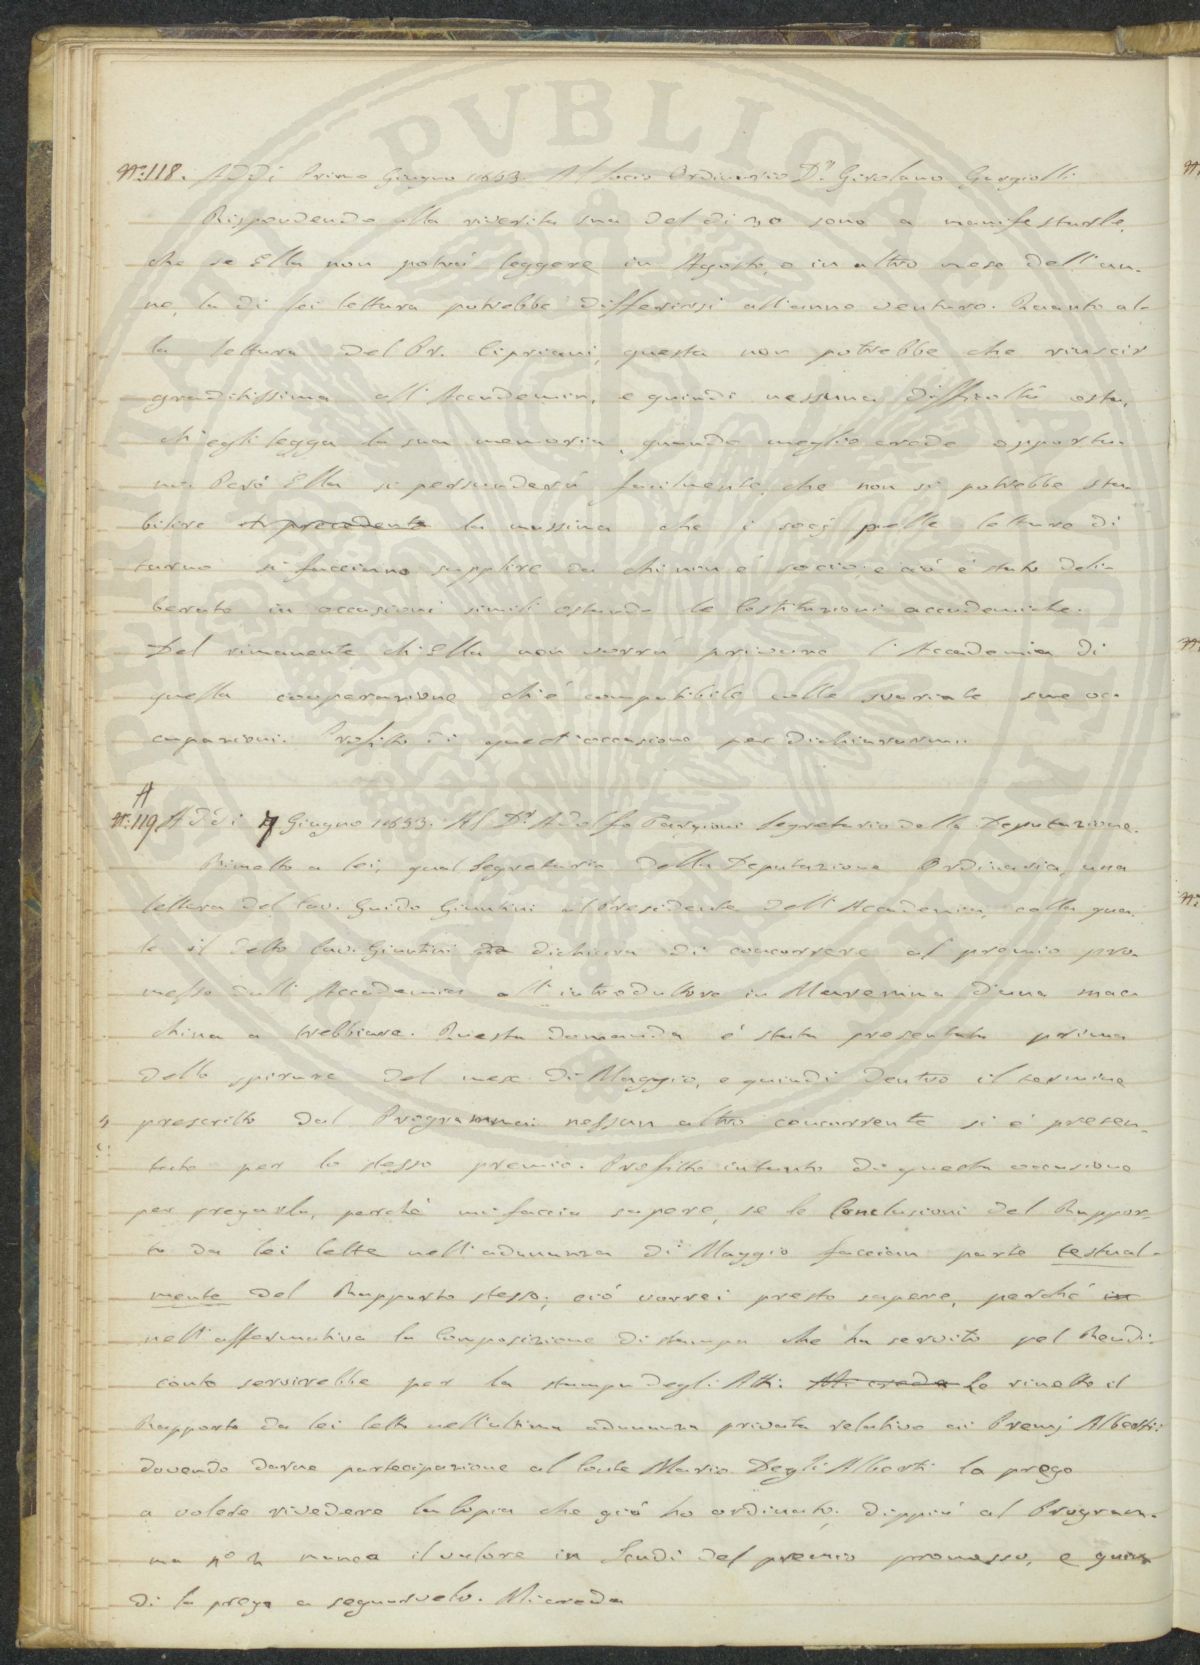 N.° 118. Addì Primo Giugno 1853. Al Socio Ordinario D.r Girolamo Gargiolli
Rispondendo alla riverita sua del dì 30 sono a manifestarle,
che se Ella non potrà leggere in Agosto, o in altro mese dell'an-
no, la di lei lettura potrebbe differirsi all'anno venturo. Quanto al-
la lettura del Pr. Cipriani, questa non potrebbe che riuscir
graditissima all'Accademia, e quindi nessuna difficoltà osta,
ch'egli legga la sua memoria, quando meglio crede opportu-
no. Però Ella si persuaderà facilmente, che non si potrebbe sta-
bilire precedente la massima che i socj nelle letture di
turno si facciano supplire da chi non è socio; e ciò è stato deli-
berato in occasioni simili ostando le Costituzioni accademiche.
Del rimanente ch'Ella non vorrà privare l'Accademia di
quella cooperazione ch'è compatibile colle svariate sue oc-
cupazioni. Profitto di quest'occasione per dichiararmi.
A
N.° 119 Addì 7 Giugno 1853. Al D.r Adolfo Targioni Segretario della Deputazione.
Rimetto a lei, qual Segretario della Deputazione Ordinaria, una
lettera del Cav. Guido Giuntini al Presidente dell'Accademia, colla qua-
le il detto Cav. Giuntini dichiara di concorrere al premio pro-
messo dall'Accademia all'introduttore in Maremma d'una mac-
china a trebbiare. Questa domanda è stata presentata prima
dello spirare del mese di Maggio, e quindi dentro il termine
prescritto dal Programma: nessun altro concorrente si è presen-
tato per lo stesso premio. Profitto intanto di questa occasione
per pregarla, perchè mi faccia sapere, se le Conclusioni del Rappor-
to da lei lette nell'adunanza di Maggio faccian parte testual-
mente del Rapporto stesso; ciò vorrei presto sapere, perchè in
nell'affermativa la Composizione di stampa che ha servito pel Rendi-
conto servirebbe per la stampa degli Atti. Mi creda Le rimetto il
Rapporto da lei letto nell'ultima adunanza privata relativo ai Premj Alberti:
dovendo darne partecipazione al Conte Mario Degli Alberti la prego
a volere rivedere la Copia che già ho ordinato; dippiù al Program-
ma n° 2 manca il valore in Scudi del premio promosso, e quin-
di la prega a segnarvelo. Mi creda